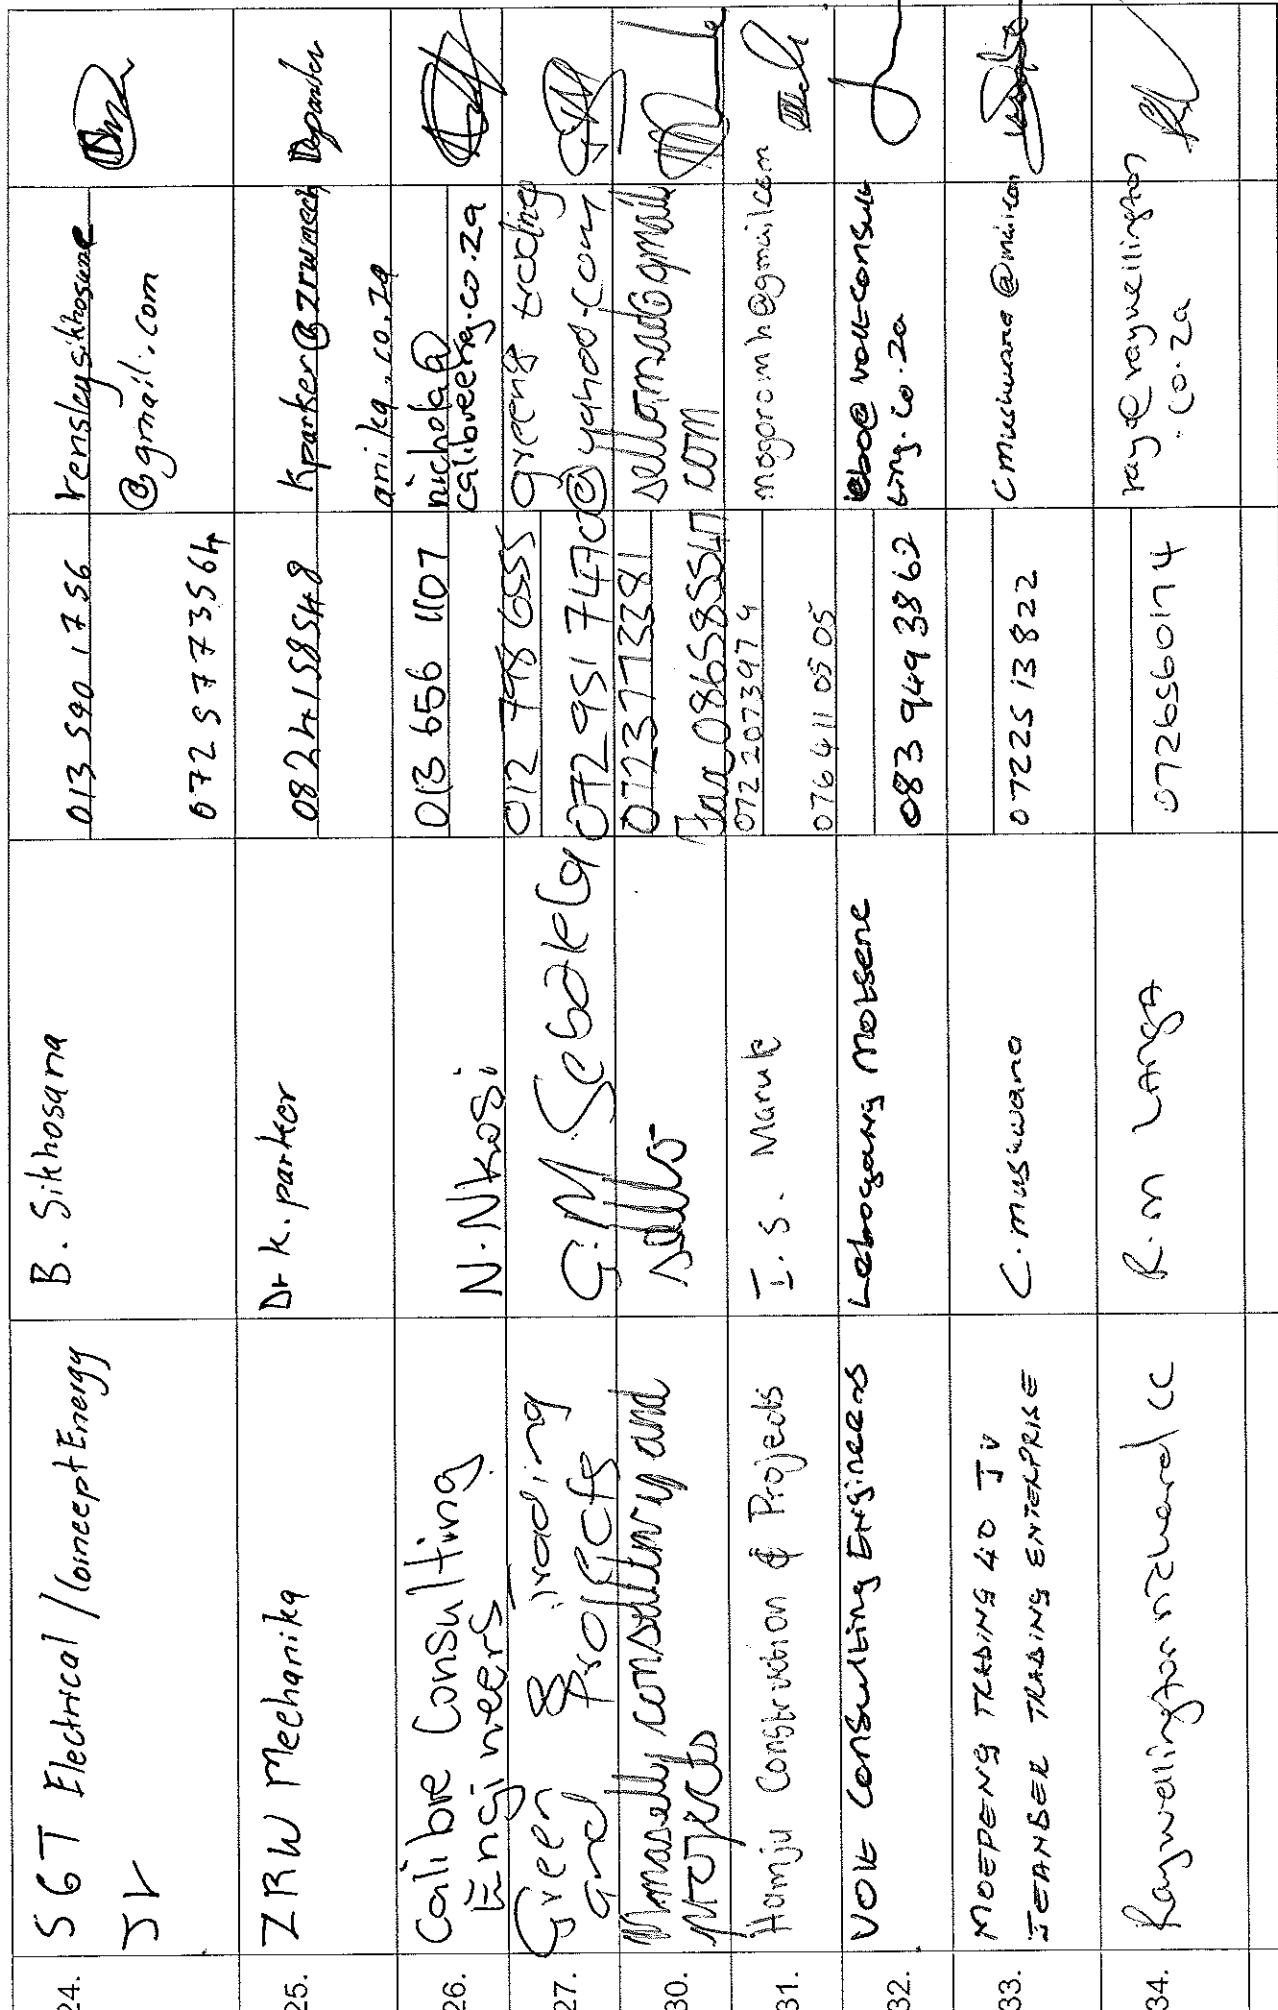 24. SGT Electrical / Concept Energy
JV
B. Sikhosana
013 590 1756
072 5773564
Kensleysikhosana
@gmail.com
25. ZRW Mechanika
Dr K. parker
0824158548
Kparker@zrwmech
anika.co.za
Dparker
26. Calibre Consulting
Engineers
N. Nkosi
013 656 1107
nichola@
calibreeng.co.za
27. Green 8 Trading
and Projects
G.M. Sebakela
012 798 6555
072 951 7470
green8 trading
@yahoo.com
30. Mmasello consultancy and
projects
sello
0723773381
Fax 086585547
sellomado@gmail
com
31. Hamju Construction & Projects
I.S. Maruk
072 2073974
076 411 05 05
mogoromh@gmail.com
32. VOLT Consulting Engineers
Lebogang Motsene
083 949 3862
lebo@volt-consul
ting.co.za
33. MOEPENG TRADING 40 JV
JEANBER TRADING ENTERPRISE
C. mushwana
07225 13 822
Cmushwana@
34. Raywellington richard CC
R.M LANGA
0726560174
ray@raywellington
.co.za